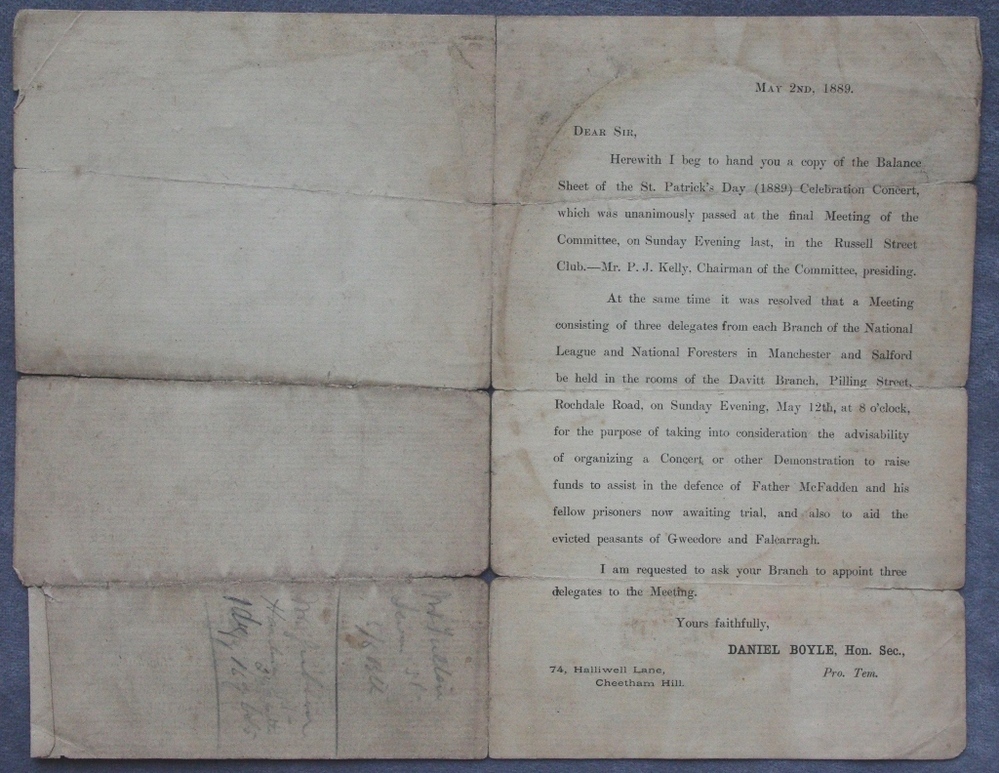 MAY 2ND, 1889.
DEAR SIR,
Herewith I beg to hand you a copy of the Balance
Sheet of the St. Patrick's Day (1889) Celebration Concert,
which was unanimously passed at the final Meeting of the
Committee, on Sunday Evening last, in the Russell Street
Club.—Mr. P. J. Kelly, Chairman of the Committee, presiding.
At the same time it was resolved that a Meeting
consisting of three delegates from each Branch of the National
League and National Foresters in Manchester and Salford
be held in the rooms of the Davitt Branch, Pilling Street,
Rochdale Road, on Sunday Evening, May 12th, at 8 o'clock,
for the purpose of taking into consideration the advisability
of organizing a Concert or other Demonstration to raise
funds to assist in the defence of Father McFadden and his
fellow prisoners now awaiting trial, and also to aid the
evicted peasants of Gweedore and Falcarragh.
I am requested to ask your Branch to appoint three
delegates to the Meeting.
Yours faithfully,
DANIEL BOYLE, Hon. Sec.,
Pro. Tem.
74, Halliwell Lane,
Cheetham Hill.